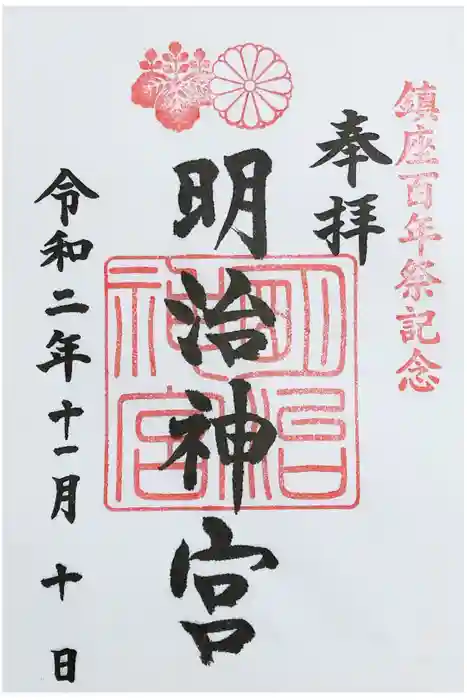 鎮座百年祭記念
奉拝
明治神宮
明治神宮
令和二年十一月十日